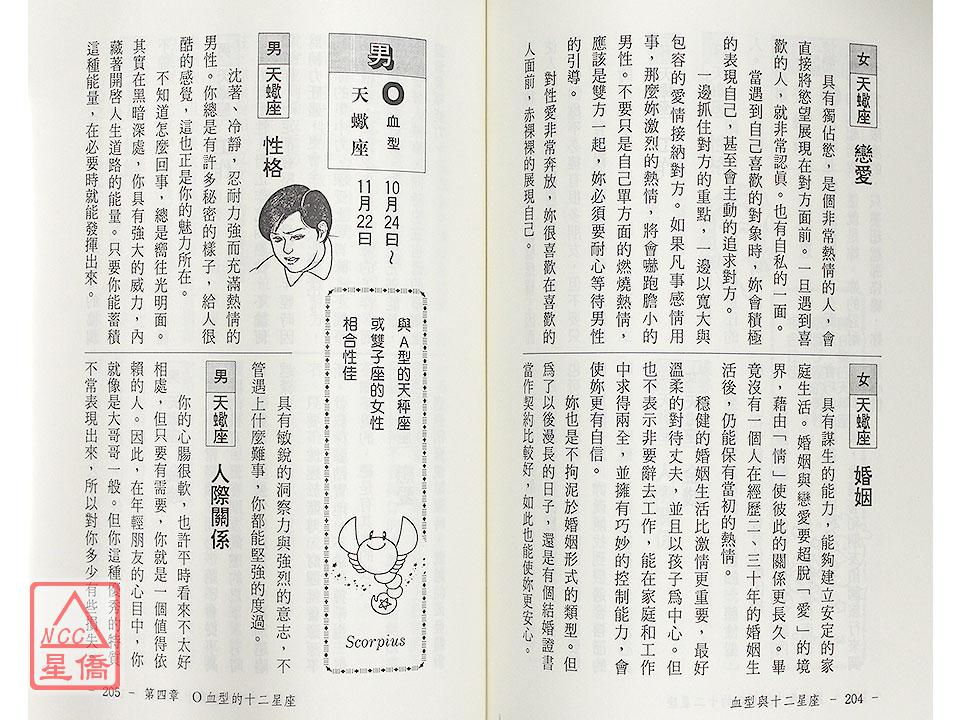 女 天蠍座 戀愛
具有獨佔慾，是個非常熱情的人，會
直接將慾望展現在對方面前。一旦遇到喜
歡的人，就非常認眞。也有自私的一面。
當遇到自己喜歡的對象時，妳會積極
的表現自己，甚至會主動的追求對方。
一邊抓住對方的重點，一邊以寬大與
包容的愛情接納對方。如果凡事感情用
事，那麼妳激烈的熱情，將會嚇跑膽小的
男性。不要只是自己單方面的燃燒熱情，
應該是雙方一起，妳必須要耐心等待男性
的引導。
對性愛非常奔放，妳很喜歡在喜歡的
人面前，赤裸裸的展現自己。
女 天蠍座 婚姻
具有謀生的能力，能夠建立安定的家
庭生活。婚姻與戀愛要超脫「愛」的境
界，藉由「情」使彼此的關係更長久。畢
竟沒有一個人在經歷二、三十年的婚姻生
活後，仍能保有當初的熱情。
穩健的婚姻生活比激情更重要，最好
溫柔的對待丈夫，並且以孩子爲中心。但
也不表示非要辭去工作，能在家庭和工作
中求得兩全，並擁有巧妙的控制能力，會
使妳更有自信。
妳也是不拘泥於婚姻形式的類型。但
爲了以後漫長的日子，還是有個結婚證書
當作契約比較好，如此也能使妳更安心。
血型與十二星座 - 204 -
男 O血型
天蠍座
10月24日～
11月22日
與A型的天秤座
或雙子座的女性
相合性佳
Scorpius
男 天蠍座 性格
沈著、冷靜，忍耐力強而充滿熱情的
男性。你總是有許多秘密的樣子，給人很
酷的感覺，這也正是你的魅力所在。
不知道怎麼回事，總是嚮往光明面。
其實在黑暗深處，你具有強大的威力，內
藏著開啓人生道路的能量。只要你能蓄積
這種能量，在必要時就能發揮出來。
具有敏銳的洞察力與強烈的意志，不
管遇上什麼難事，你都能堅強的度過。
男 天蠍座 人際關係
你的心腸很軟，也許平時看來不太好
相處，但只要有需要，你就是一個值得依
賴的人。因此，在年輕朋友的心目中，你
就像是大哥哥一般。但你這種優秀的特質
不常表現出來，所以對你多少有些損失。
- 205 - 第四章 O血型的十二星座
NCC
星僑